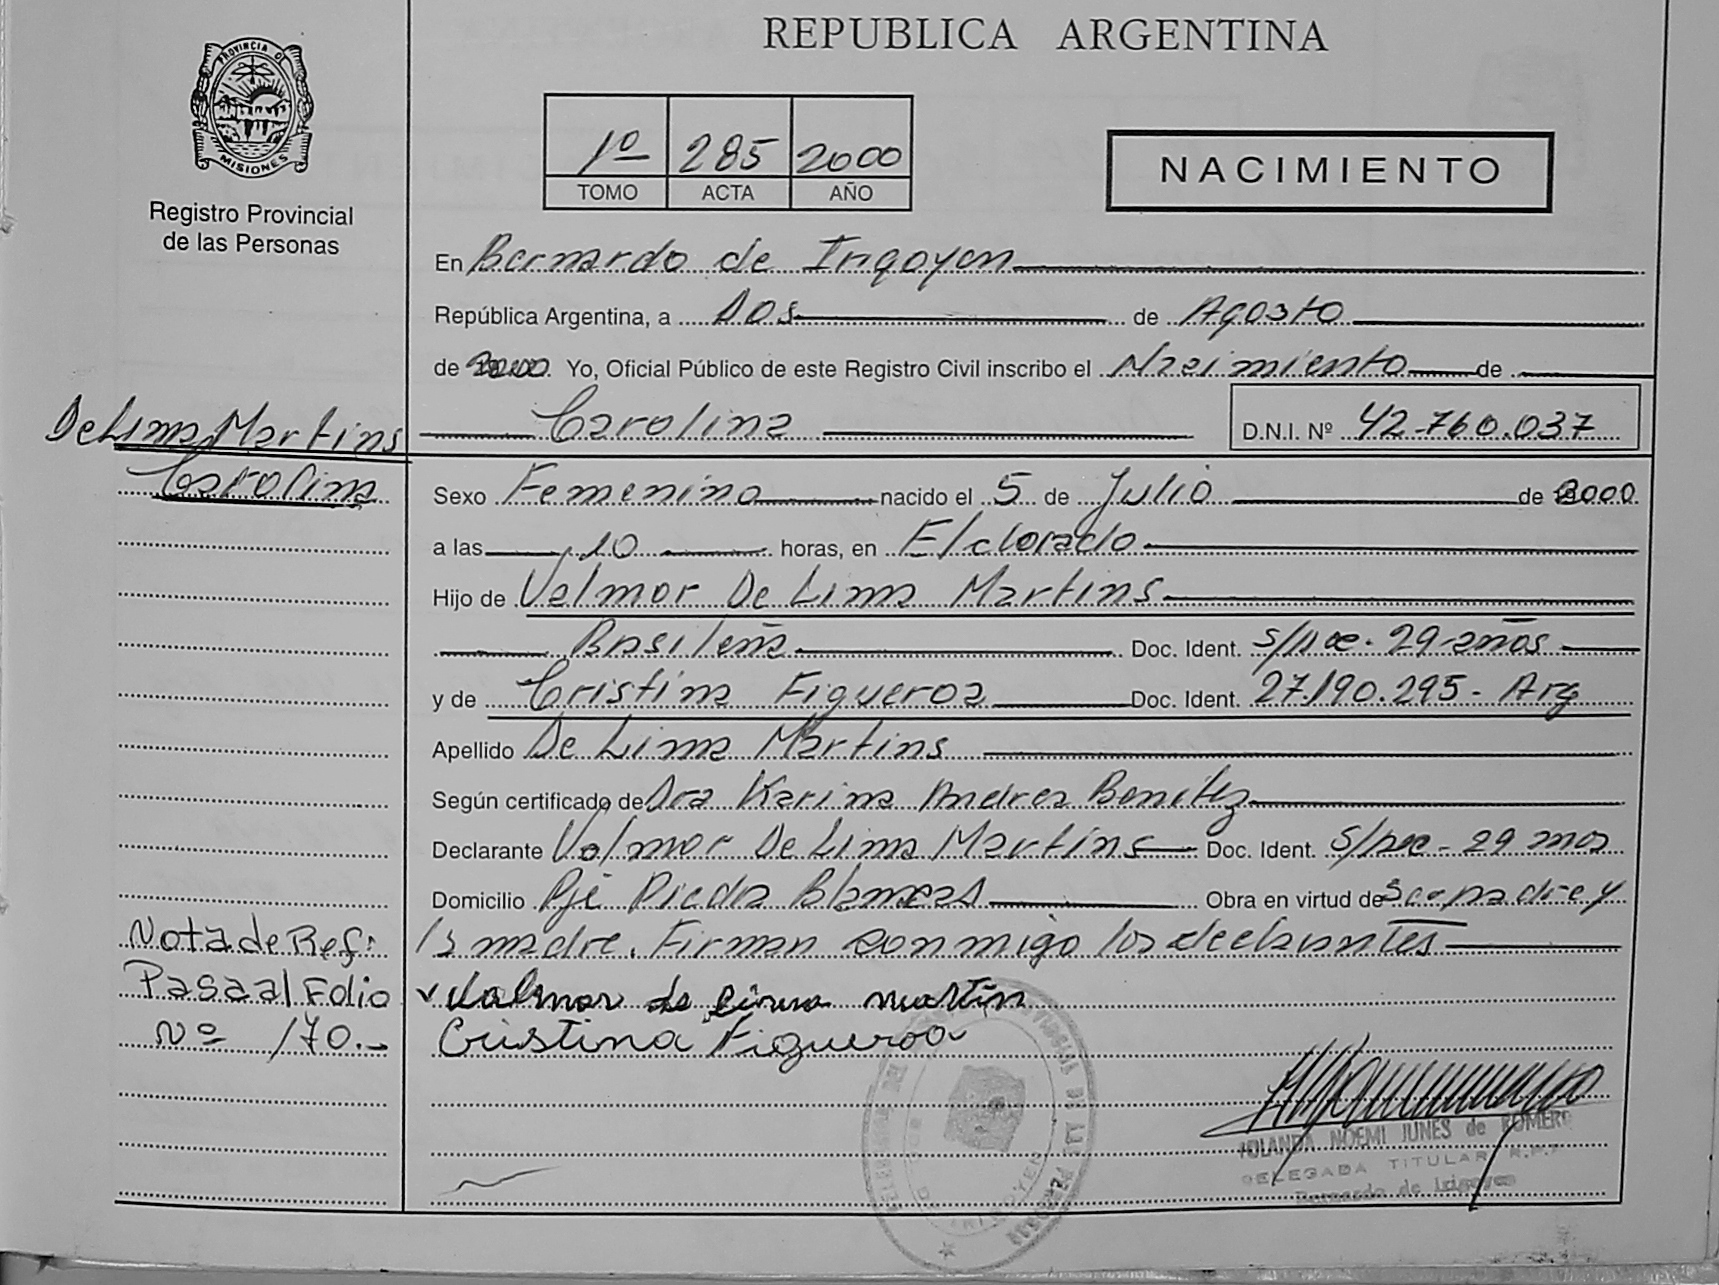 REPUBLICA ARGENTINA
PROVINCIA DE
MISIONES
Registro Provincial
de las Personas
1º 285 2000
TOMO ACTA AÑO
NACIMIENTO
En Bernardo de Irigoyen
República Argentina, a Dos de Agosto
de 2000 Yo, Oficial Público de este Registro Civil inscribo el Nacimiento de
De Lima Martins
Carolina
Carolina D.N.I. Nº 42.760.037
Sexo Femenino nacido el 5 de Julio de 2000
a las 10 horas, en Eldorado
Hijo de Valmor De Lima Martins
Brasileña Doc. Ident. 29 años
y de Cristina Figueroa Doc. Ident. 27.190.295- Arg
Apellido De Lima Martins
Según certificado de Dra Karina Andrea Benítez
Declarante Valmor De Lima Martins Doc. Ident. 29 años
Domicilio Pje Piedra Blancas Obra en virtud de Ser padre y
la madre. Firman conmigo los declarantes
Nota de Ref:
Pasa al Folio
Nº 170.-
Valmor de lima martin
Cristina Figueroa
IOLANDA NOEMI JUNES de ROMERO
DELEGADA TITULAR R.P.P.
Bernardo de Irigoyen